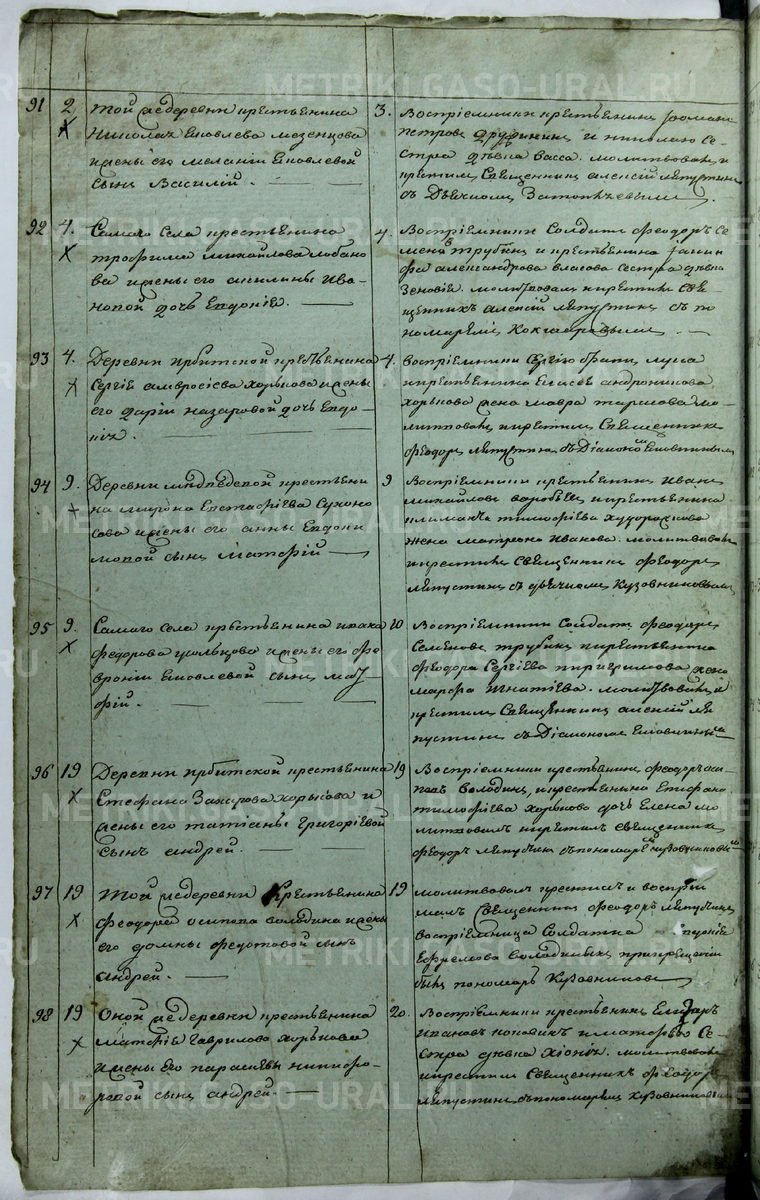 91 2 Той же деревни крестьянина
Николая Яковлева мезенцова
и жены его меланіи Яковлевой
сынъ Василій.
3. Воспріемники крестьянинъ
петровъ и николаю се-
стра дѣвка Васса. молитвовалъ и
крестилъ Священникъ алексій ляпустинъ
съ Дьячкомъ
92 4. Самаго Села крестьянина
трофима михайлова лобано
ва и жены его акилины Ива-
новой дочь Евдокія.
4. Воспріемники Солдатъ феодоръ Се
меновъ трубинъ и крестьянина
александрова власова Сестра дѣвка
Зеновія. молитвовалъ и крестилъ свя-
щенникъ алексій ляпустинъ съ по
номаремъ
93 4. Деревни ирбитской крестьянина
Сергія амвросіева хорькова и жены
его дарьи назаровой дочь Евдо-
кія.
4. Воспріемники Сергію братъ лука
и крестьянина Елисея андроникова
хорькова жена мавра тарасова мо-
литвовалъ и крестилъ Священникъ
феодоръ ляпустинъ съ Діакономъ
94 9. Деревни медведевой крестьяни
на мирона Евстафіева Сухоно
сова и жены его анны Евдоки
мовой сынъ Матфій
9 Воспріемники крестьянинъ Иванъ
михайловъ воробьевъ и крестьянина
тимофіева
жена матрона Иванова. молитвовалъ
и крестилъ Священникъ феодоръ
ляпустинъ съ дьячкомъ Кузовниковымъ
95 9. Самаго Села крестьянина исака
федорова усольцова и жены его фе
вроніи Яковлевой сынъ мат-
фій.
10 Воспріемники Солдатъ феодоръ
Семеновъ трубинъ и крестьянина
феодора Сергіева пиргримова жена
марфа Игнатіева. молитвовалъ и
крестилъ Священникъ алексій ля
пустинъ съ Діакономъ
96 19 Деревни ирбитской крестьянина
Стефана Захарова хорькова и
жены его татіаны Григоріевой
сынъ андрей.
19 Воспріемники крестьянинъ феодоръ оси-
повъ володинъ и крестьянина
тимофіева хорькова дочь Елена мо
литвовалъ и крестилъ священникъ
феодоръ ляпустинъ съ пономаремъ кузовниковымъ
97 19 Той же деревни Крестьянина
феодора осипова володина и жены
его домны федотовой сынъ
андрей.
19 молитвовалъ крестилъ и воспрій
малъ Священникъ феодоръ ляпустинъ
воспріемница Солдатка
Ефремова Володкина при крещеніи
былъ пономарь Кузовниковъ
98 19 Оной же деревни крестьянина
Матфія Гаврилова хорькова
и жены его парасквы никифо-
ровой сынъ андрей.
20. Воспріемники крестьянинъ
ивановъ и матфію Се-
стра дѣвка Хіонія. молитвовалъ
и крестилъ Священникъ феодоръ
ляпустинъ съ пономаремъ кузовниковымъ
METRIKI.GASO-URAL.RU